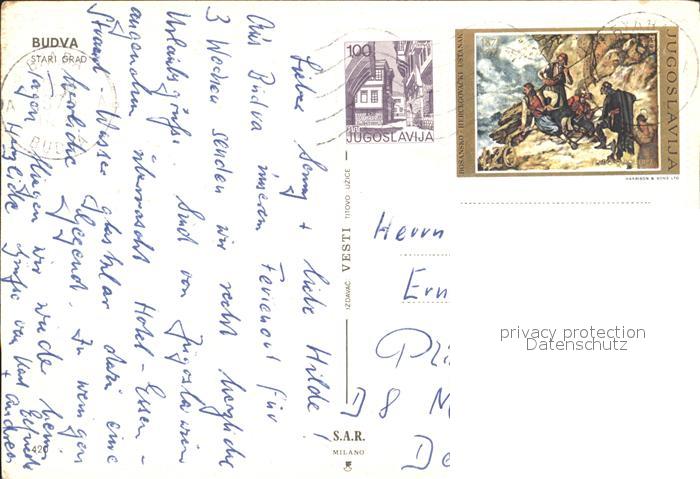 BUDVA
STARI GRAD
Liebe Sonny + liebe Hilde!
Aus Budva unserem Ferienort für
3 Wochen senden wir recht herzliche
Urlaubsgrüße. Sind von Jugoslawien
angenehm überrascht Hotel - Essen -
Strand - Wasser glasklar dazu eine
herrliche Gegend. In wenigen
Tagen fliegen wir wieder heim
Herzliche Grüße von
+ Andrea
420
IZDAVAČ VESTI TITOVO UŽICE
S.A.R.
MILANO
100
JUGOSLAVIJA
BOSANSKO-HERCEGOVAČKI USTANAK
JUGOSLAVIJA
HARRISON & SONS LTD
Herrn
Ern
D 8 M
privacy protection
Datenschutz